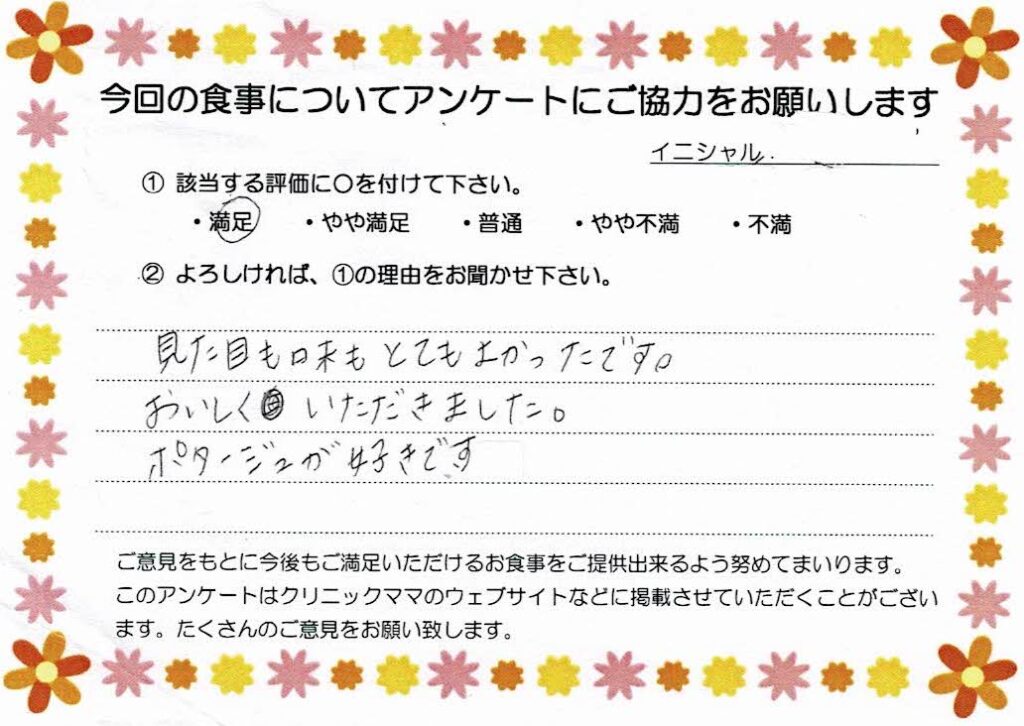 今回の食事についてアンケートにご協力をお願いします
イニシャル
① 該当する評価に〇を付けて下さい。
・満足 ・やや満足 ・普通 ・やや不満 ・不満
② よろしければ、①の理由をお聞かせ下さい。
見た目も味もとてもよかったです。
おいしくいただきました。
ポタージュが好きです
ご意見をもとに今後もご満足いただけるお食事をご提供出来るよう努めてまいります。
このアンケートはクリニックママのウェブサイトなどに掲載させていただくことがござい
ます。たくさんのご意見をお願い致します。